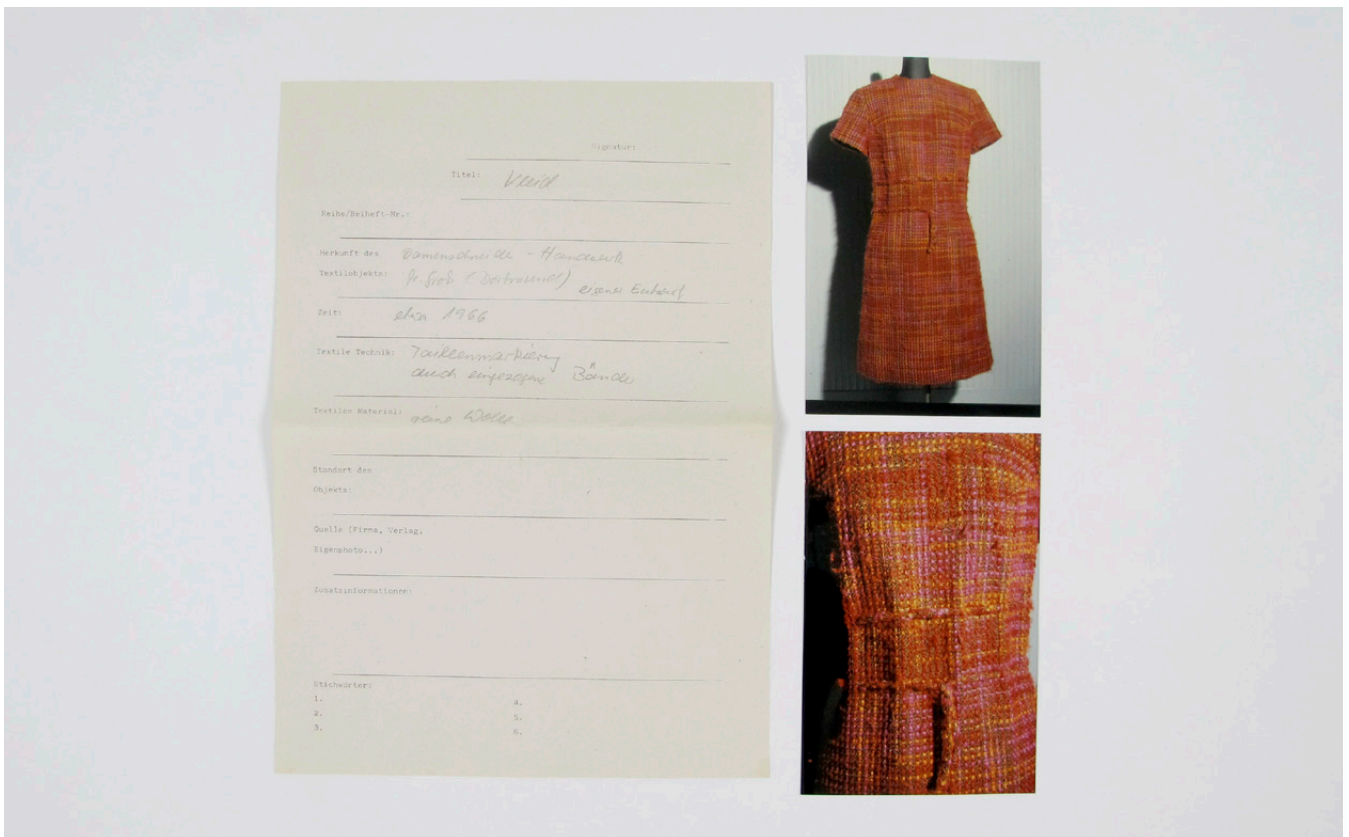 Signatur:
Titel: Kleid
Reihe/Beiheft-Nr.:
Herkunft des Damenschneider - Handwerk
Textilobjekts: (Dortmund) eigener Entwurf
Zeit: etwa 1966
Textile Technik: Taillenmarkierung
durch eingezogene Bänder
Textiles Material: reine Wolle
Standort des
Objekts:
Quelle (Firma, Verlag,
Eigenphoto...)
Zusatzinformationen:
Stichwörter:
1. 4.
2. 5.
3. 6.